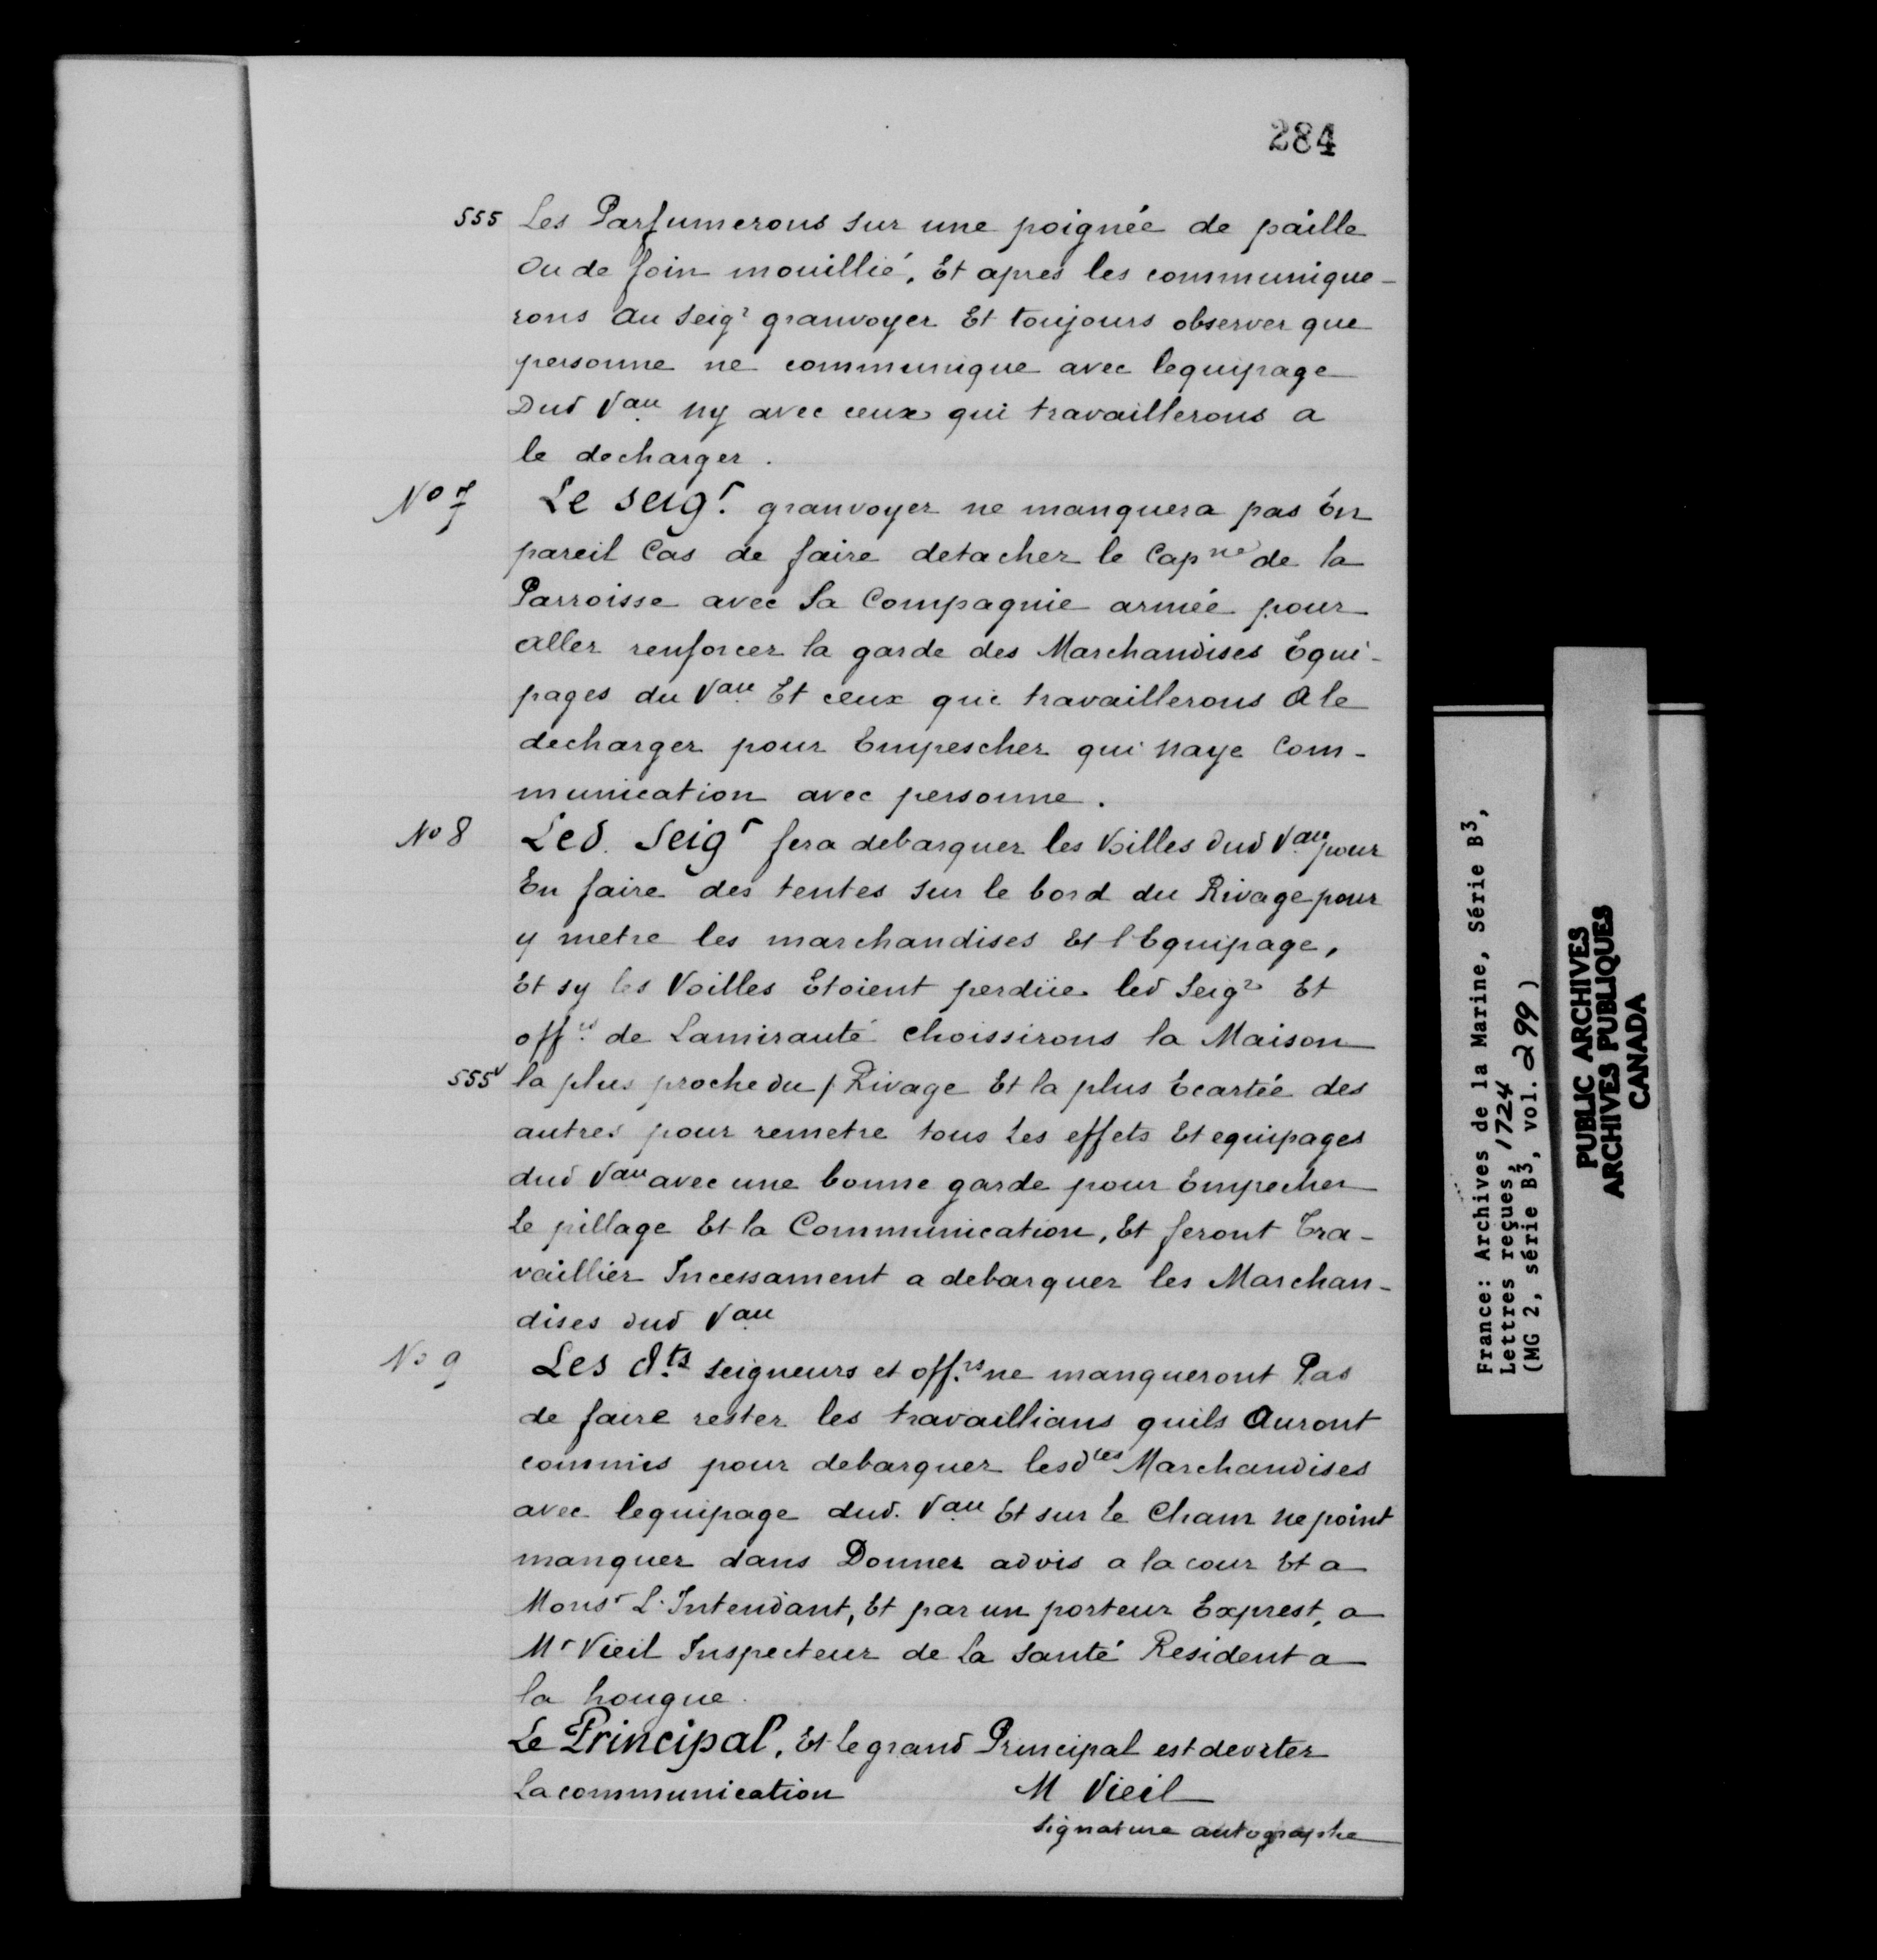 284
555 Les Parfumerons sur une poignée de paille
Ou de foin mouillié, Et apres les communique-
rons au Seigr granvoyer Et toujours observer que
personne ne communique avec lequipage
Dud Vau ny avec ceux qui travaillerons a
le decharger.
No 7 Le Seigr. granvoyer ne manquera pas En
pareil Cas de faire detacher le Capne de la
Parroisse avec Sa Compagnie armée pour
aller renforcer la garde des Marchandises Equi-
pages du Vau Et ceux qui travaillerons A le
decharger pour Empescher qui naye Com-
munication avec personne.
No 8 Led. Seigr fera debarquer les Voilles dud Vau pour
En faire des tentes sur le bord du Rivage pour
y metre les marchandises Et l'Equipage,
Et sy les Voilles Etoient perdüe led Seigr Et
offrs de Lamirauté choissirons la Maison
555v la plus proche du / Rivage Et la plus Ecartée des
autres pour remetre tous les effets Et equipages
dud Vau avec une bonne garde pour Empecher
Le pillage Et la Communication, Et feront Tra-
vaillier Incessament a debarquer les Marchan-
dises dud Vau
No 9 Les dts seigneurs et offrs ne manqueront Pas
de faire rester les travaillians quils Auront
commis pour debarquer lesdtes Marchandises
avec lequipage dud. Vau Et sur le Cham ne point
manquer dans Donner advis a la cour Et a
Monsr L'Intendant, Et par un porteur Exprest, a
Mr Vieil Inspecteur de la Santé Resident a
la hougue.
Le Principal, Et le grand Principal est deviter
La communication M Vieil
signature autographe
France: Archives de la Marine, Série B3,
Lettres reçues, 1724
(MG 2, série B3, vol. 299)
PUBLIC ARCHIVES
ARCHIVES PUBLIQUES
CANADA